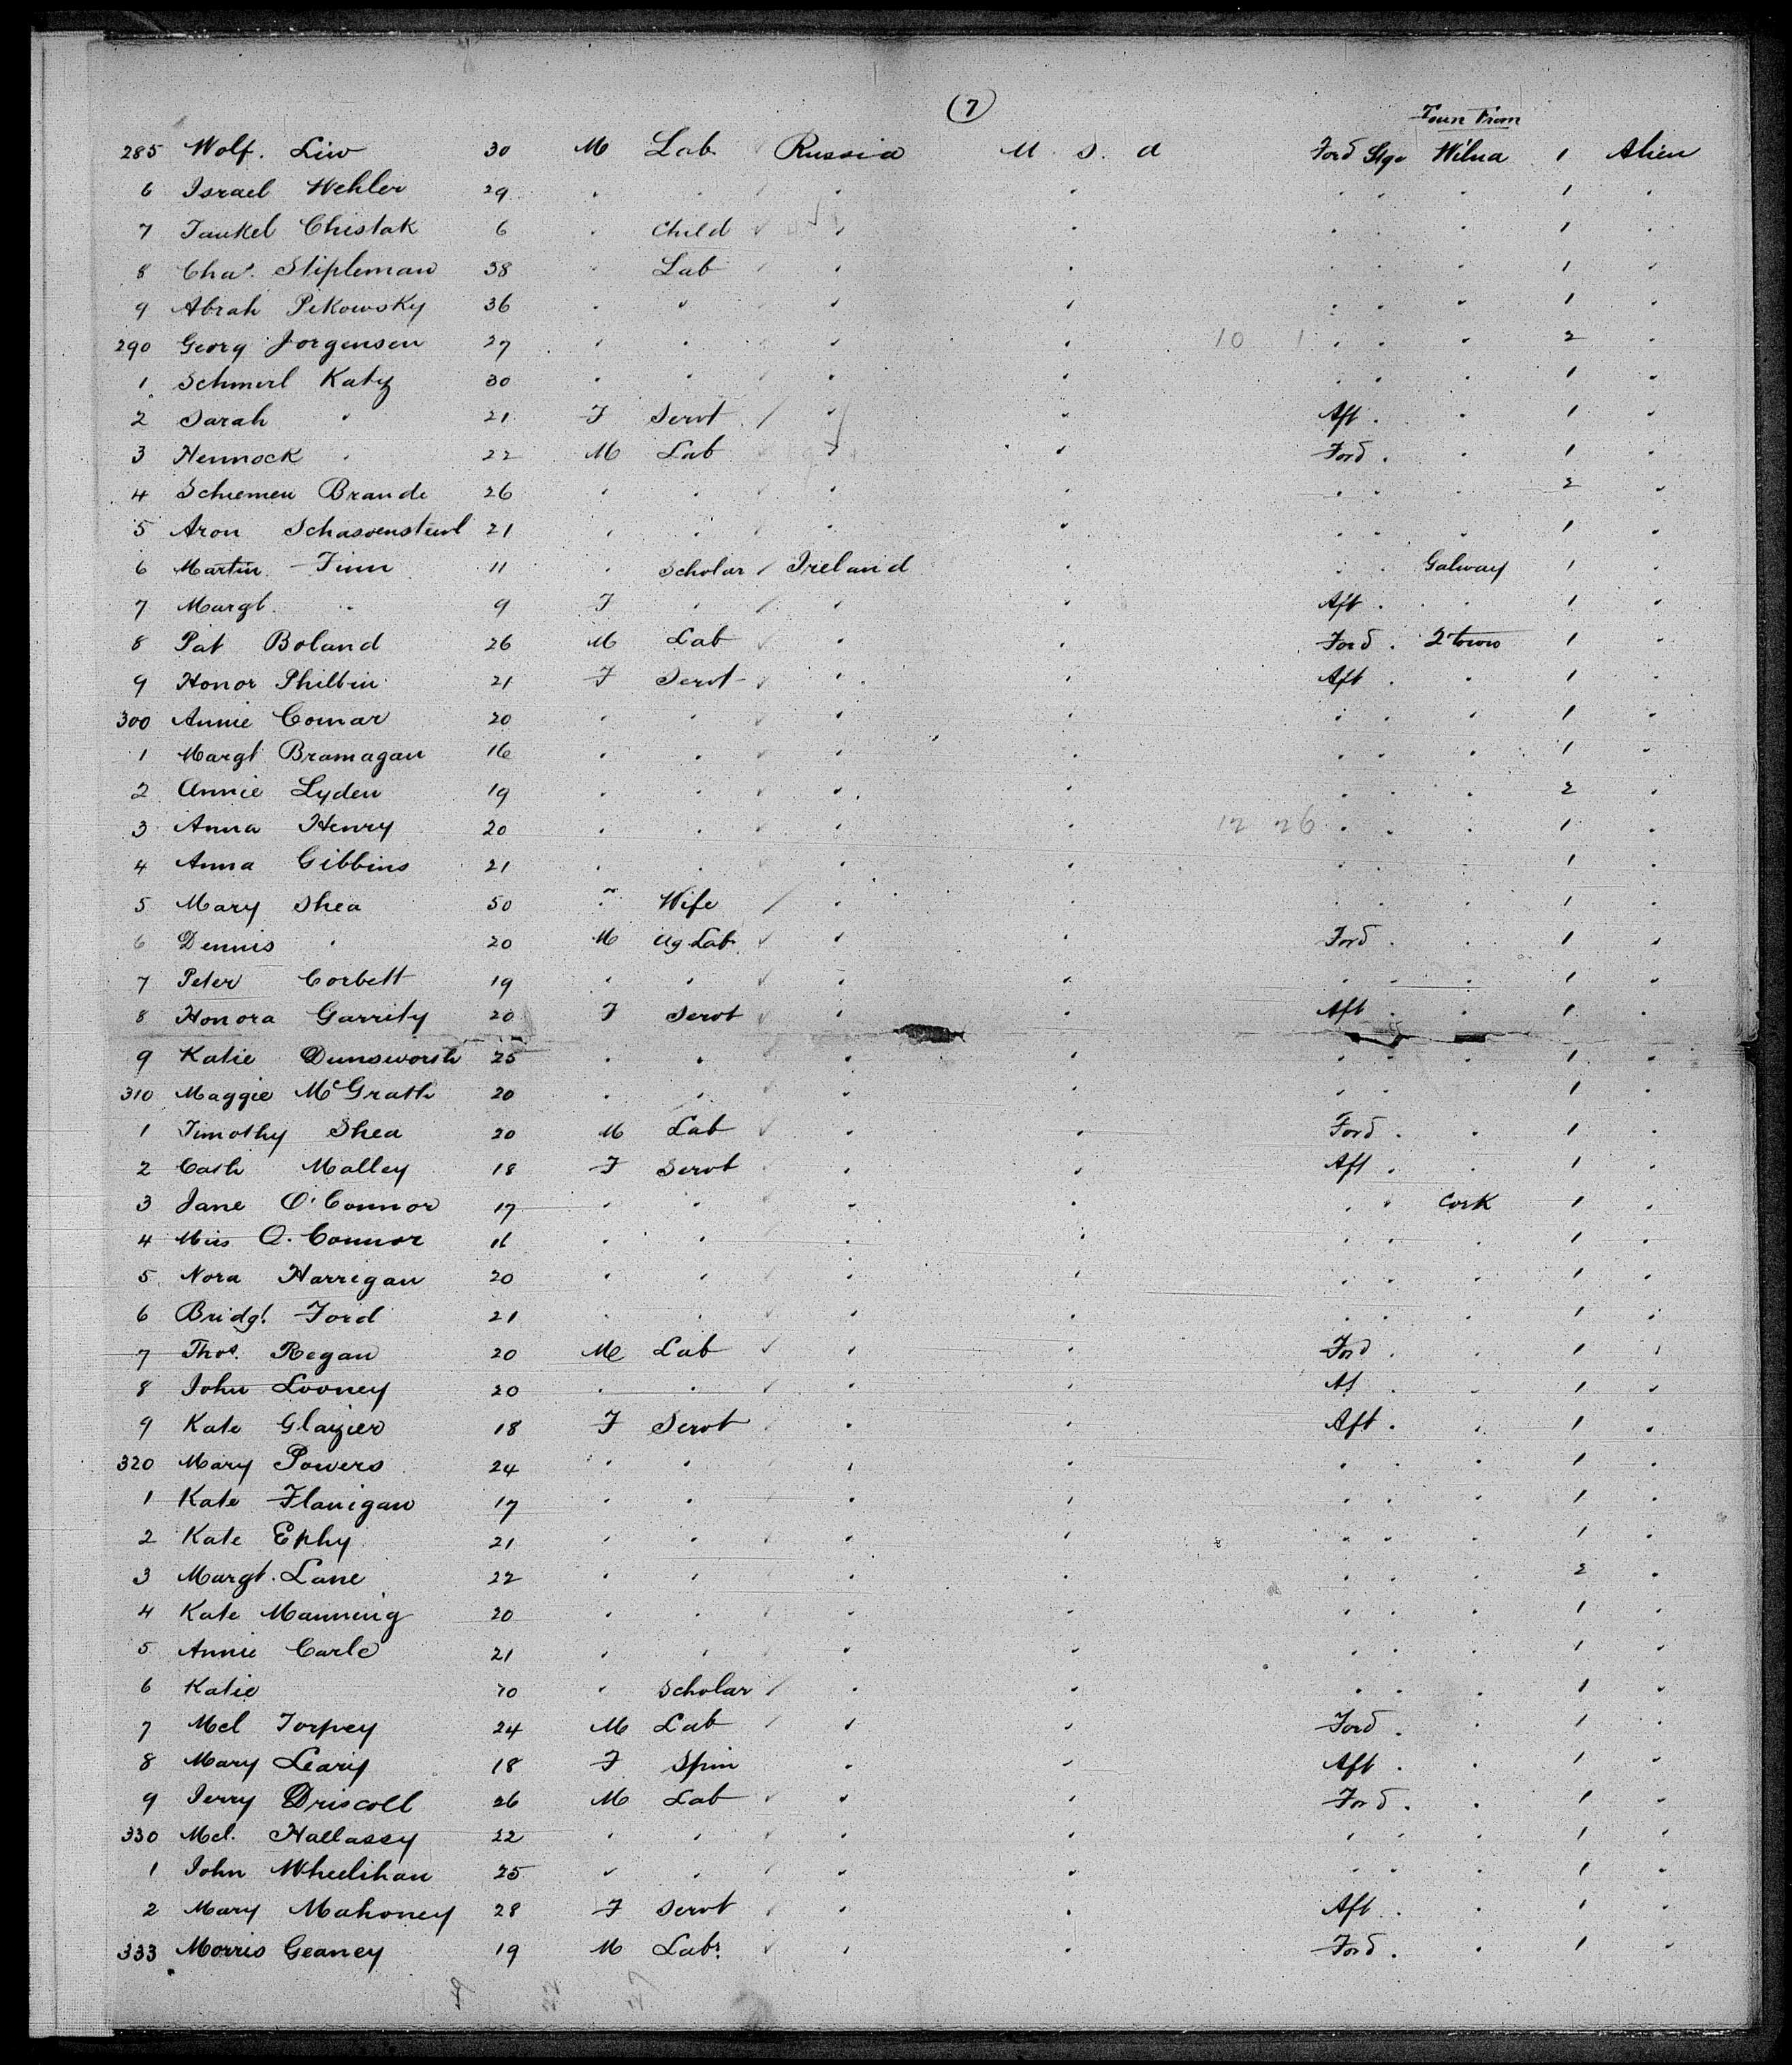 (7)
Town From
285 Wolf. Liw 30 M Lab Russia U. S. A Ford Stge Wilna 1 Alien
6 Israel Wehler 29 1
7 Jankel Chistak 6 Child 1
8 Chas. Stipleman 38 Lab 1
9 Abrah Pekowsky 36 1
290 Georg Jorgensen 27 10 1 2
1 Schmerl Katz 30 1
2 Sarah " 21 F Servt Aft 1
3 Hennock " 22 M Lab Ford 1
4 Schiemen Brande 26 2
5 Aron 21 1
6 Martin Finn 11 Scholar Ireland Galway 1
7 Margt " 9 F Aft 1
8 Pat Boland 26 M Lab Ford 1
9 Honor Philbin 21 F Servt Aft 1
300 Annie Comar 20 1
1 Margt Bramagan 16 1
2 Annie Lyden 19 2
3 Anna Henry 20 12 26 1
4 Anna Gibbins 21 1
5 Mary Shea 50 Wife 1
6 Dennis " 20 M Ag Lab Ford 1
7 Peter Corbett 19 1
8 Honora Garrity 20 F Servt Aft 1
9 Katie Dunsworth 25 1
310 Maggie McGrath 20 1
1 Timothy Shea 20 M Lab Ford 1
2 Cath Malley 18 F Servt Aft 1
3 Jane O'Connor 17 Cork 1
4 Miss O. Connor 16 1
5 Nora Harrigan 20 1
6 Bridgt Ford 21 1
7 Thos. Regan 20 M Lab Ford 1
8 John Looney 20 Af 1
9 Kate Glazier 18 F Servt Aft 1
320 Mary Powers 24 1
1 Kate Flanigan 17 1
2 Kate Ephy 21 1
3 Margt. Lane 22 2
4 Kate Manning 20 1
5 Annie Carle 21 1
6 Katie 10 Scholar 1
7 Mcl Torpey 24 M Lab Ford 1
8 Mary Leary 18 F Spin Aft 1
9 Jerry Driscoll 26 M Lab Ford 1
330 Mcl. Hallassy 22 1
1 John Wheelihan 25 1
2 Mary Mahoney 28 F Servt Aft 1
333 Morris Geaney 19 M Labr. Ford 1